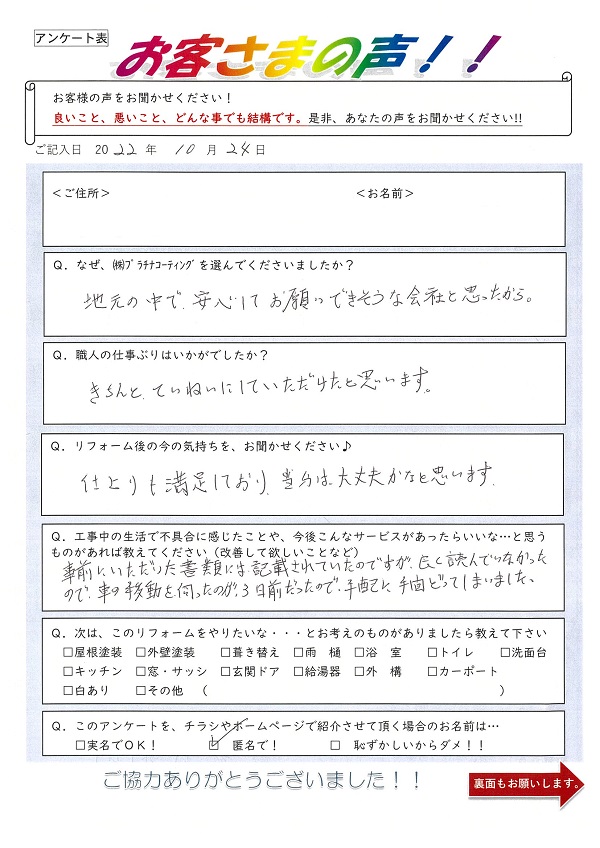 アンケート表
お客さまの声！！
お客様の声をお聞かせください！
良いこと、悪いこと、どんな事でも結構です。是非、あなたの声をお聞かせください!!
ご記入日 2022年 10月24日
＜ご住所＞ ＜お名前＞
Q．なぜ、㈱ﾌﾟﾗﾁﾅｺｰﾃｨﾝｸﾞを選んでくださいましたか？
地元の中で、安心してお願いできそうな会社と思ったから。
Q．職人の仕事ぶりはいかがでしたか？
きちんと、ていねいにしていただけたと思います。
Q．リフォーム後の今の気持ちを、お聞かせください♪
仕上りも満足しており、当分は大丈夫かなと思います。
Q．工事中の生活で不具合に感じたことや、今後こんなサービスがあったらいいな…と思う
ものがあれば教えてください（改善して欲しいことなど）
事前にいただいた書類には記載されていたのですが、良く読んでいなかった
ので、車の移動を伺ったのが、3日前だったので、手配に手間どってしまいました。
Q．次は、このリフォームをやりたいな・・・とお考えのものがありましたら教えて下さい
□屋根塗装 □外壁塗装 □葺き替え □雨 樋 □浴 室 □トイレ □洗面台
□キッチン □窓・サッシ □玄関ドア □給湯器 □外 構 □カーポート
□白あり □その他 （ ）
Q．このアンケートを、チラシやホームページで紹介させて頂く場合のお名前は…
□実名でOK！ ☑ 匿名で！ □ 恥ずかしいからダメ！！
ご協力ありがとうございました！！
裏面もお願いします。